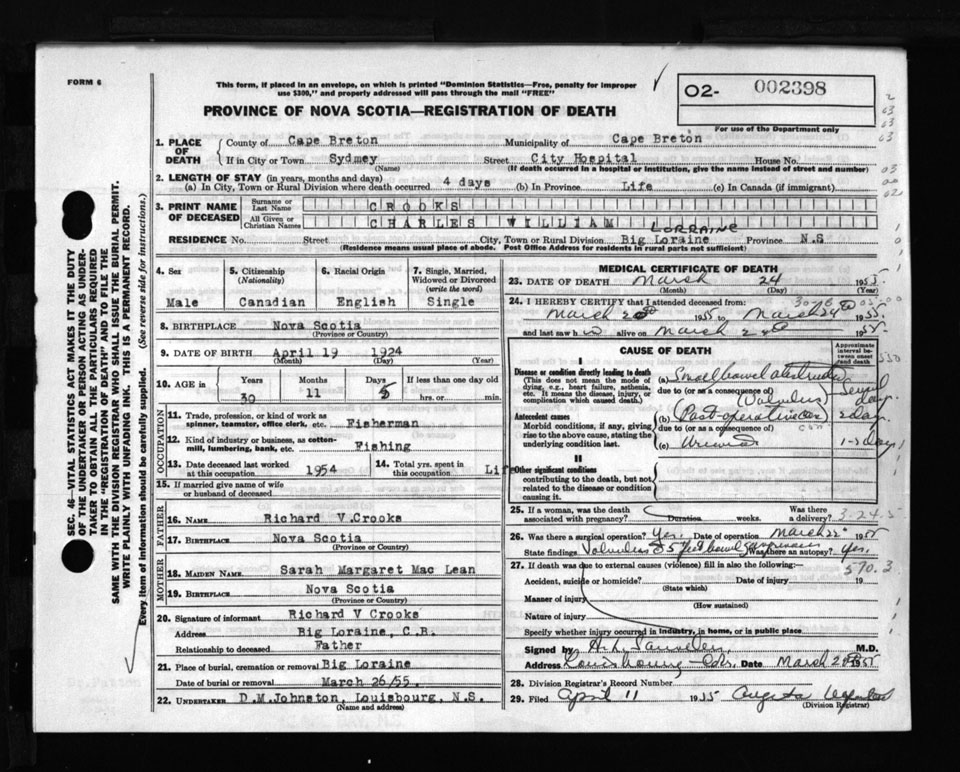 FORM 6
This form, if placed in an envelope, on which is printed "Dominion Statistics—Free, penalty for improper
use $300," and properly addressed will pass through the mail "FREE"
PROVINCE OF NOVA SCOTIA—REGISTRATION OF DEATH
O2- 002398
For use of the Department only
1. PLACE OF DEATH
County of Cape Breton Municipality of Cape Breton
If in City or Town Sydmey Street City Hospital House No.
(Name) (If death occurred in a hospital or institution, give the name instead of street and number)
2. LENGTH OF STAY (in years, months and days)
(a) In City, Town or Rural Division where death occurred 4 days (b) In Province Life (c) In Canada (if immigrant)
3. PRINT NAME OF DECEASED
Surname or Last Name CROOKS
All Given or Christian Names CHARLES WILLIAM
LORRAINE
RESIDENCE No. Street City, Town or Rural Division Big Loraine Province N.S
(Residence means usual place of abode. Post Office Address for residents in rural parts not sufficient)
4. Sex 5. Citizenship (Nationality) 6. Racial Origin 7. Single, Married, Widowed or Divorced (write the word)
Male Canadian English Single
8. BIRTHPLACE Nova Scotia
(Province or Country)
9. DATE OF BIRTH April 19 1924
(Month) (Day) (Year)
10. AGE in Years Months Days If less than one day old
30 11 5 hrs. or min.
OCCUPATION
11. Trade, profession, or kind of work as
spinner, teamster, office clerk, etc. Fisherman
12. Kind of industry or business, as cotton-
mill, lumbering, bank, etc. Fishing
13. Date deceased last worked at this occupation 1954 14. Total yrs. spent in this occupation Life
15. If married give name of wife
or husband of deceased
FATHER
16. NAME Richard V.Crooks
17. BIRTHPLACE Nova Scotia
(Province or Country)
MOTHER
18. MAIDEN NAME Sarah Margaret Mac Lean
19. BIRTHPLACE Nova Scotia
(Province or Country)
20. Signature of informant Richard V Crooks
Address Big Loraine, C.B.
Relationship to deceased Father
21. Place of burial, cremation or removal Big Loraine
Date of burial or removal March 26/55
22. UNDERTAKER D.M.Johnston, Louisbourg, N.S.
(Name and address)
MEDICAL CERTIFICATE OF DEATH
23. DATE OF DEATH March 24 1955
(Month) (Day) (Year)
24. I HEREBY CERTIFY that I attended deceased from:
March 1955 to March 24th 1955.
and last saw h alive on March 1955
CAUSE OF DEATH
Approximate interval between onset and death
I
Disease or condition directly leading to death (a) Small bowel obstruction
(This does not mean the mode of dying, e.g., heart failure, asthenia, etc. It means the disease, injury, or complication which caused death.)
due to (or as a consequence of) (Volvulus)
Antecedent causes (b) Post-operative
Morbid conditions, if any, giving rise to the above cause, stating the underlying condition last.
due to (or as a consequence of)
(c) Uremia
several days
2 days
1-2 days
II
Other significant conditions
contributing to the death, but not
related to the disease or condition
causing it.
25. If a woman, was the death associated with pregnancy? Duration weeks. Was there a delivery?
3-24-5
26. Was there a surgical operation? Yes. Date of operation March 22 1955
State findings Volvulus 5 feet bowel gangrenous Was there an autopsy? Yes.
570.3
27. If death was due to external causes (violence) fill in also the following:—
Accident, suicide or homicide? Date of injury 19
(State which)
Manner of injury
(How sustained)
Nature of injury
Specify whether injury occurred in industry, in home, or in public place
Signed by M.D.
Address Louisbourg Date March 1955
28. Division Registrar's Record Number
29. Filed April 11 1955 Augusta
(Division Registrar)
SEC. 46—VITAL STATISTICS ACT MAKES IT THE DUTY
OF THE UNDERTAKER OR PERSON ACTING AS UNDER-
TAKER TO OBTAIN ALL THE PARTICULARS REQUIRED
IN THE "REGISTRATION OF DEATH" AND TO FILE THE
SAME WITH THE DIVISION REGISTRAR WHO SHALL ISSUE THE BURIAL PERMIT.
WRITE PLAINLY WITH UNFADING INK. THIS IS A PERMANENT RECORD.
Every item of information should be carefully supplied. (See reverse side for instructions.)